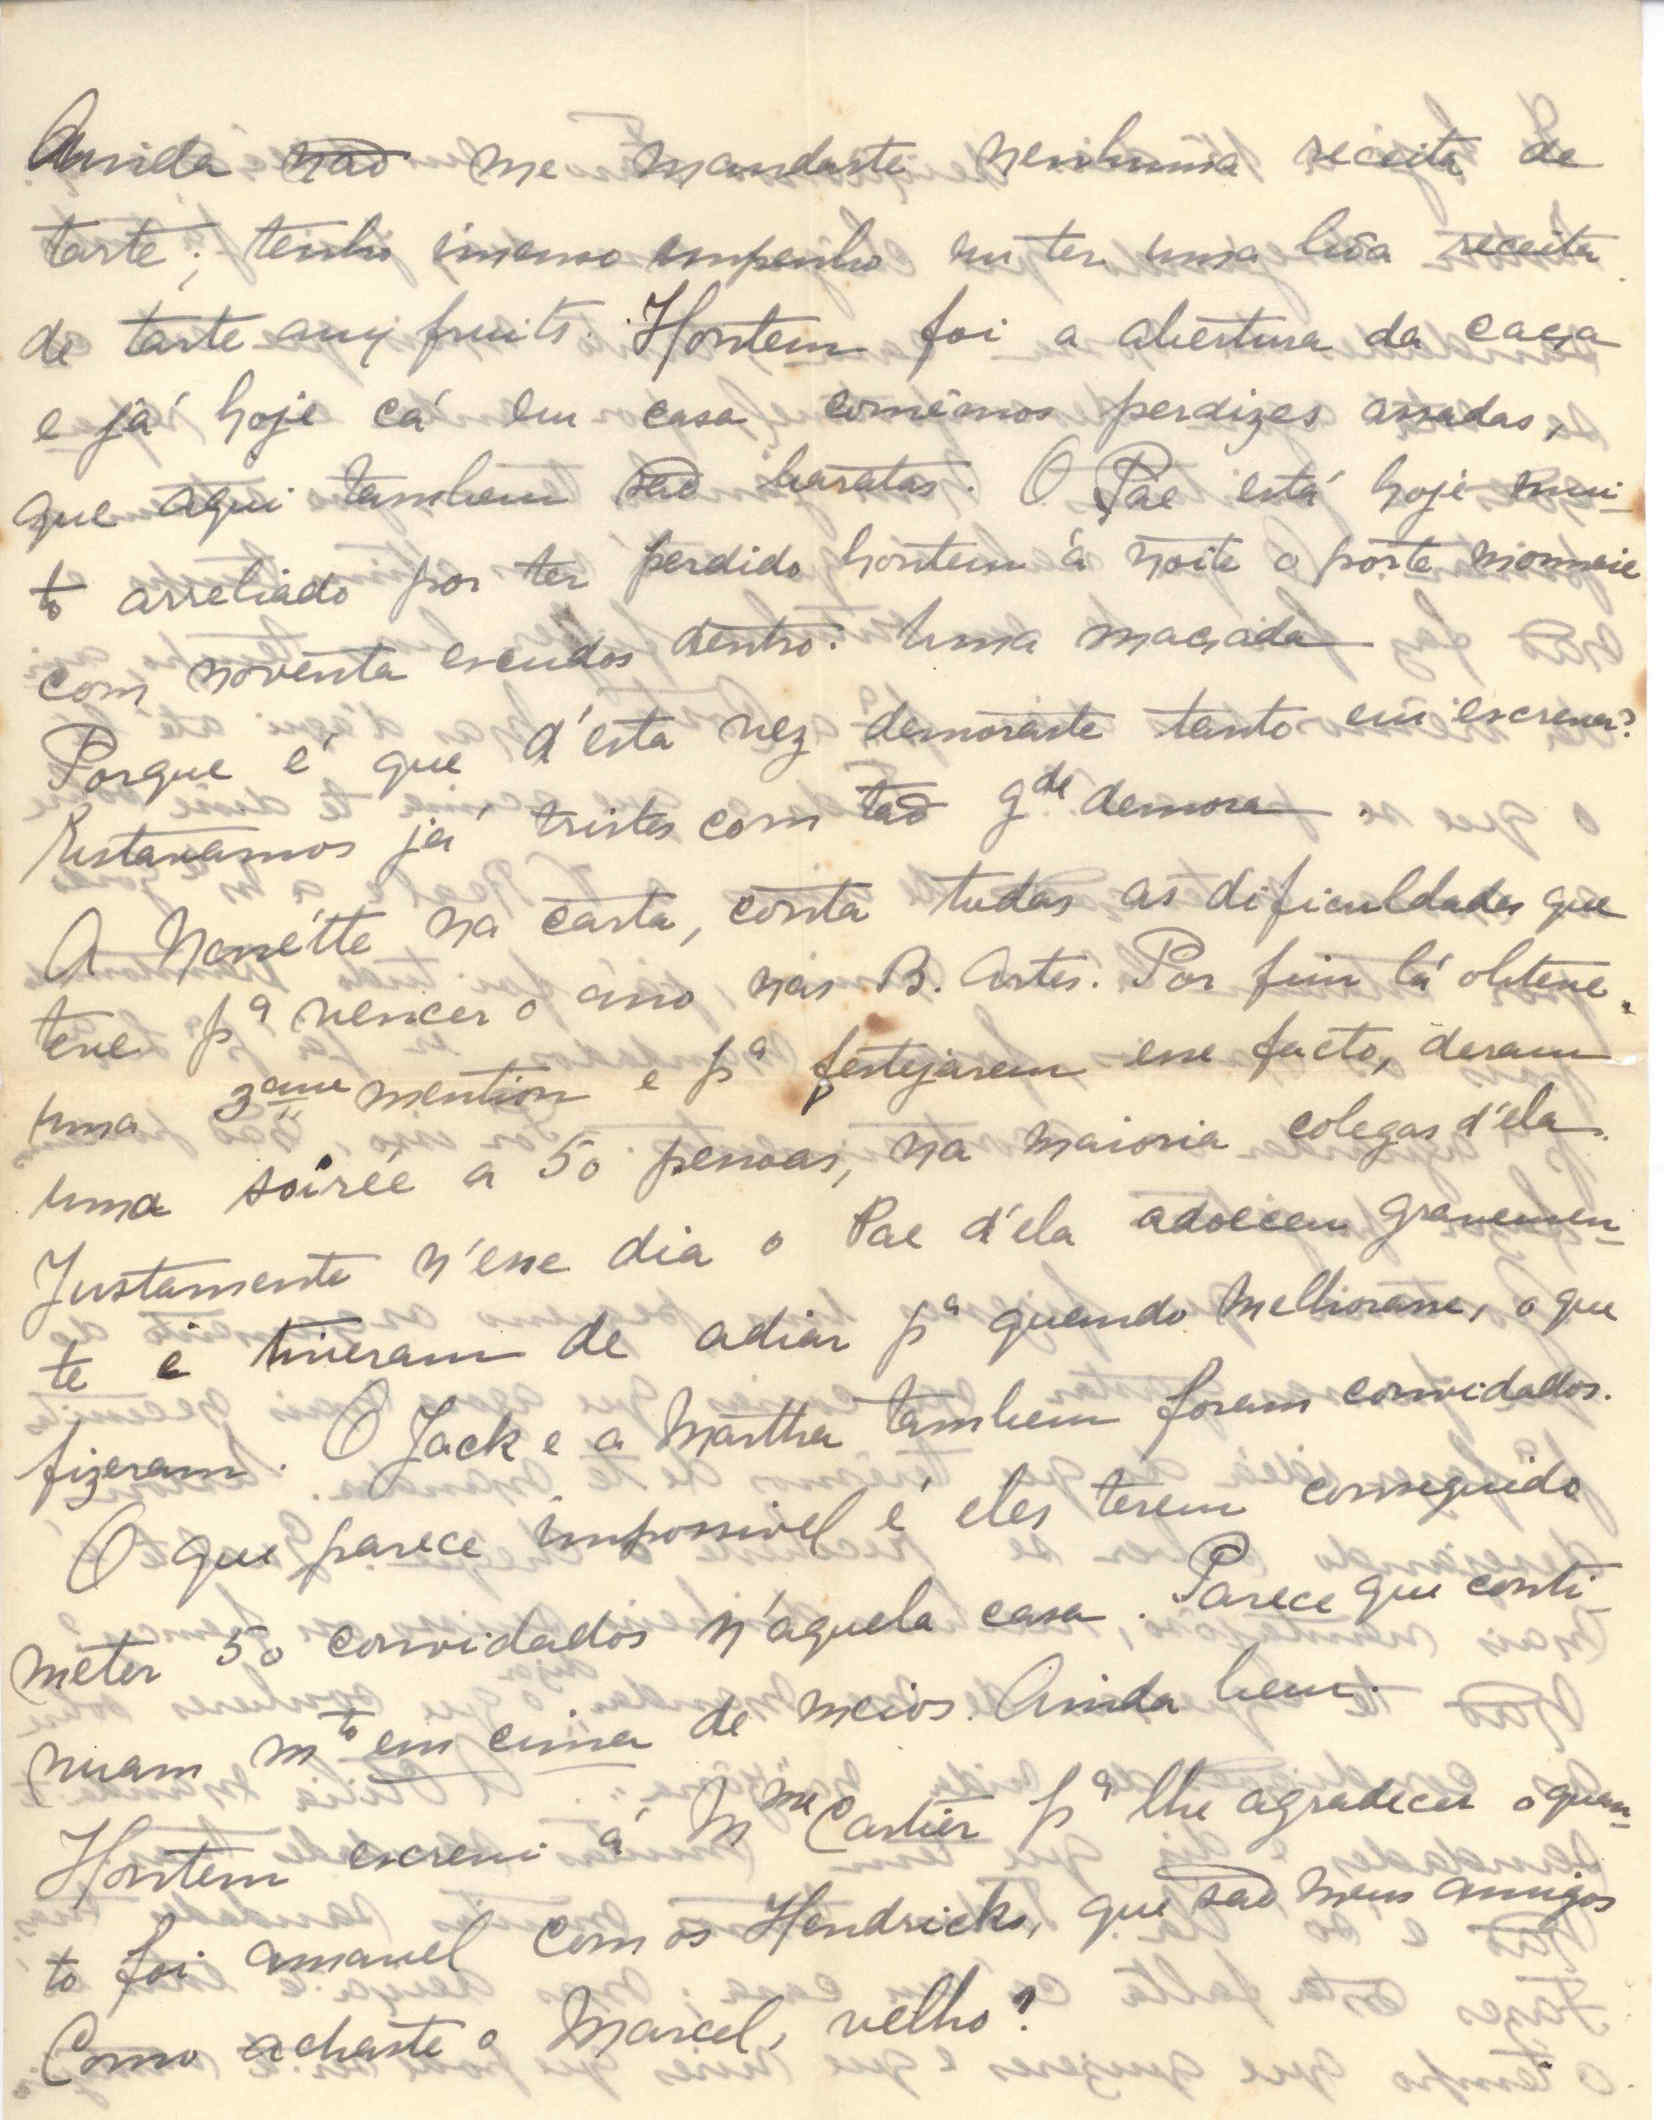 Ainda não me mandaste nenhuma receita de
tarte; tenho imenso empenho em ter uma bôa receita
de tarte aux fruits. Hontem foi a abertura da caça
e já hoje cá em casa comêmos perdizes assadas,
que aqui tambem são baratas. O Pae está hoje mui-
to arreliado por ter perdido hontem á noite o porte monnaie
com noventa escudos dentro. Uma maçada
Porque é que d'esta vez demoraste tanto em escrever?
Estavamos já tristes com tão gde demora.
A Nenétte na carta, conta todas as dificuldades que
teve pa vencer o ano nas B. Artes. Por fim lá obteve
uma 3ème mention e pa festejarem esse facto, deram
uma soirée a 50 pessoas, na maioria colegas d'ela.
Justamente n'esse dia o Pae d'ela adoeceu gravemen-
te e tiveram de adiar pa quando melhorasse, o que
fizeram. O Jack e a Martha tambem foram convidados.
O que parece impossivel é eles terem conseguido
meter 50 convidados n'aquela casa. Parece que conti-
nuam mto em cima de meios. Ainda bem.
Hontem escrevi á Mme Cartier pa lhe agradecer o quan-
to foi amavel com os Hendricks, que são meus amigos
Como achaste o Marcel, velho?